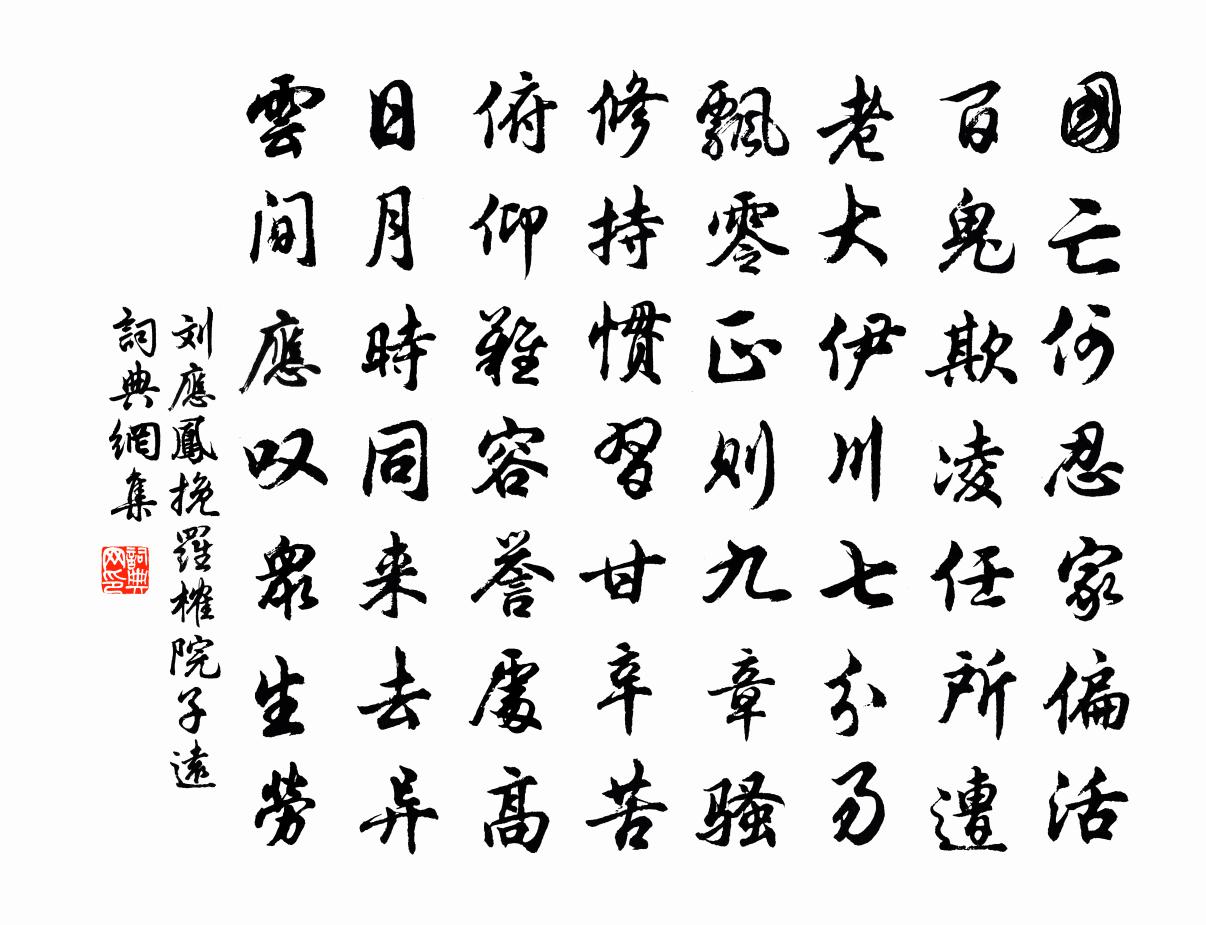 國亡何忍家偏活
百鬼欺凌任所遭
老大伊川七分易
飄零正則九章騷
修持慣習甘辛苦
俯仰難容誉處高
日月時同来去异
雲間應叹眾生勞
刘應鳳挽羅榷院子遠
詞典網集
詞典网印